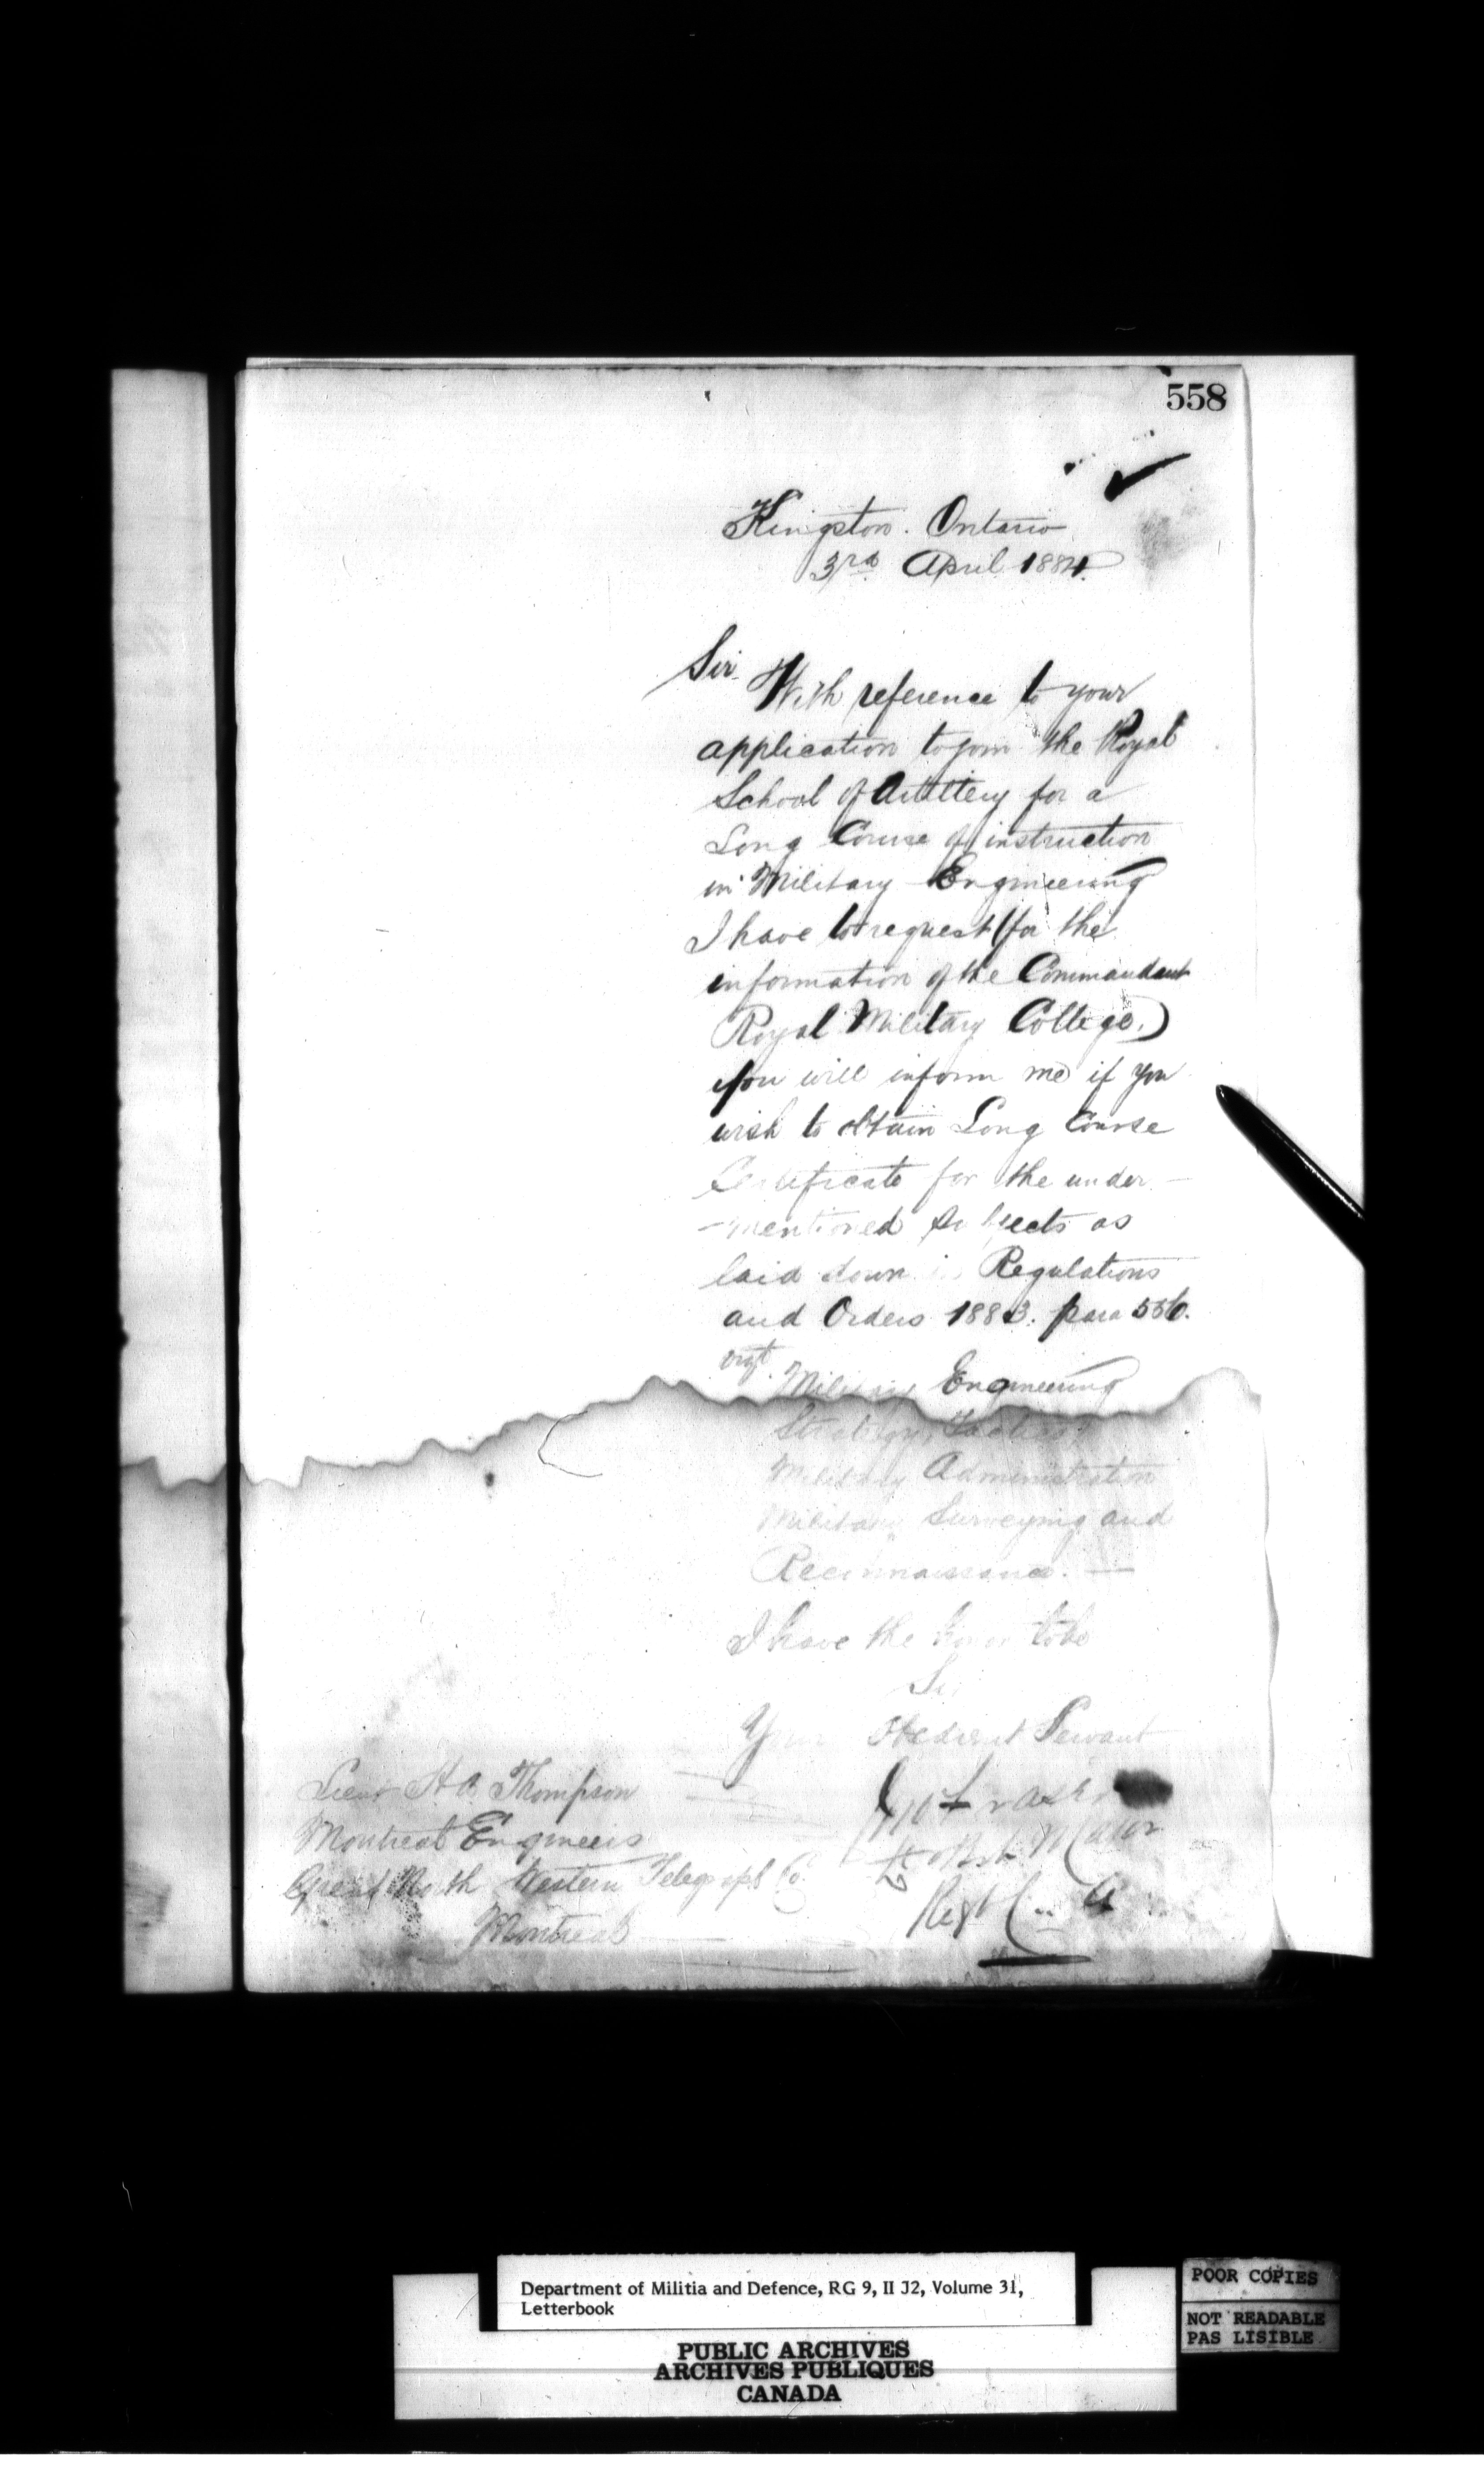 558
Kingston. Ontario
3rd April 1884.
Sir
With reference to your
application to join the Royal
School of Artillery for a
Long Course of instruction
in Military Engineering
I have to request (for the
information of the Commandant
Royal Military College.)
you will inform me if you
wish to obtain Long Course
Certificate for the under-
-mentioned subjects as
laid down in Regulations
and Orders 1883. para
vizt.
Military Engineering
Strategy, Tactics,
Military Administration
Military Surveying and
Reconnaissance. —
I have the honor to be
Sir
Your Obedient Servant
Lieut Thompson
Montreal Engineers
Great North Western Telegraph Co.
Montreal
Major
Regt
Department of Militia and Defence, RG 9, II J2, Volume 31,
Letterbook
PUBLIC ARCHIVES
ARCHIVES PUBLIQUES
CANADA
POOR COPIES
NOT READABLE
PAS LISIBLE